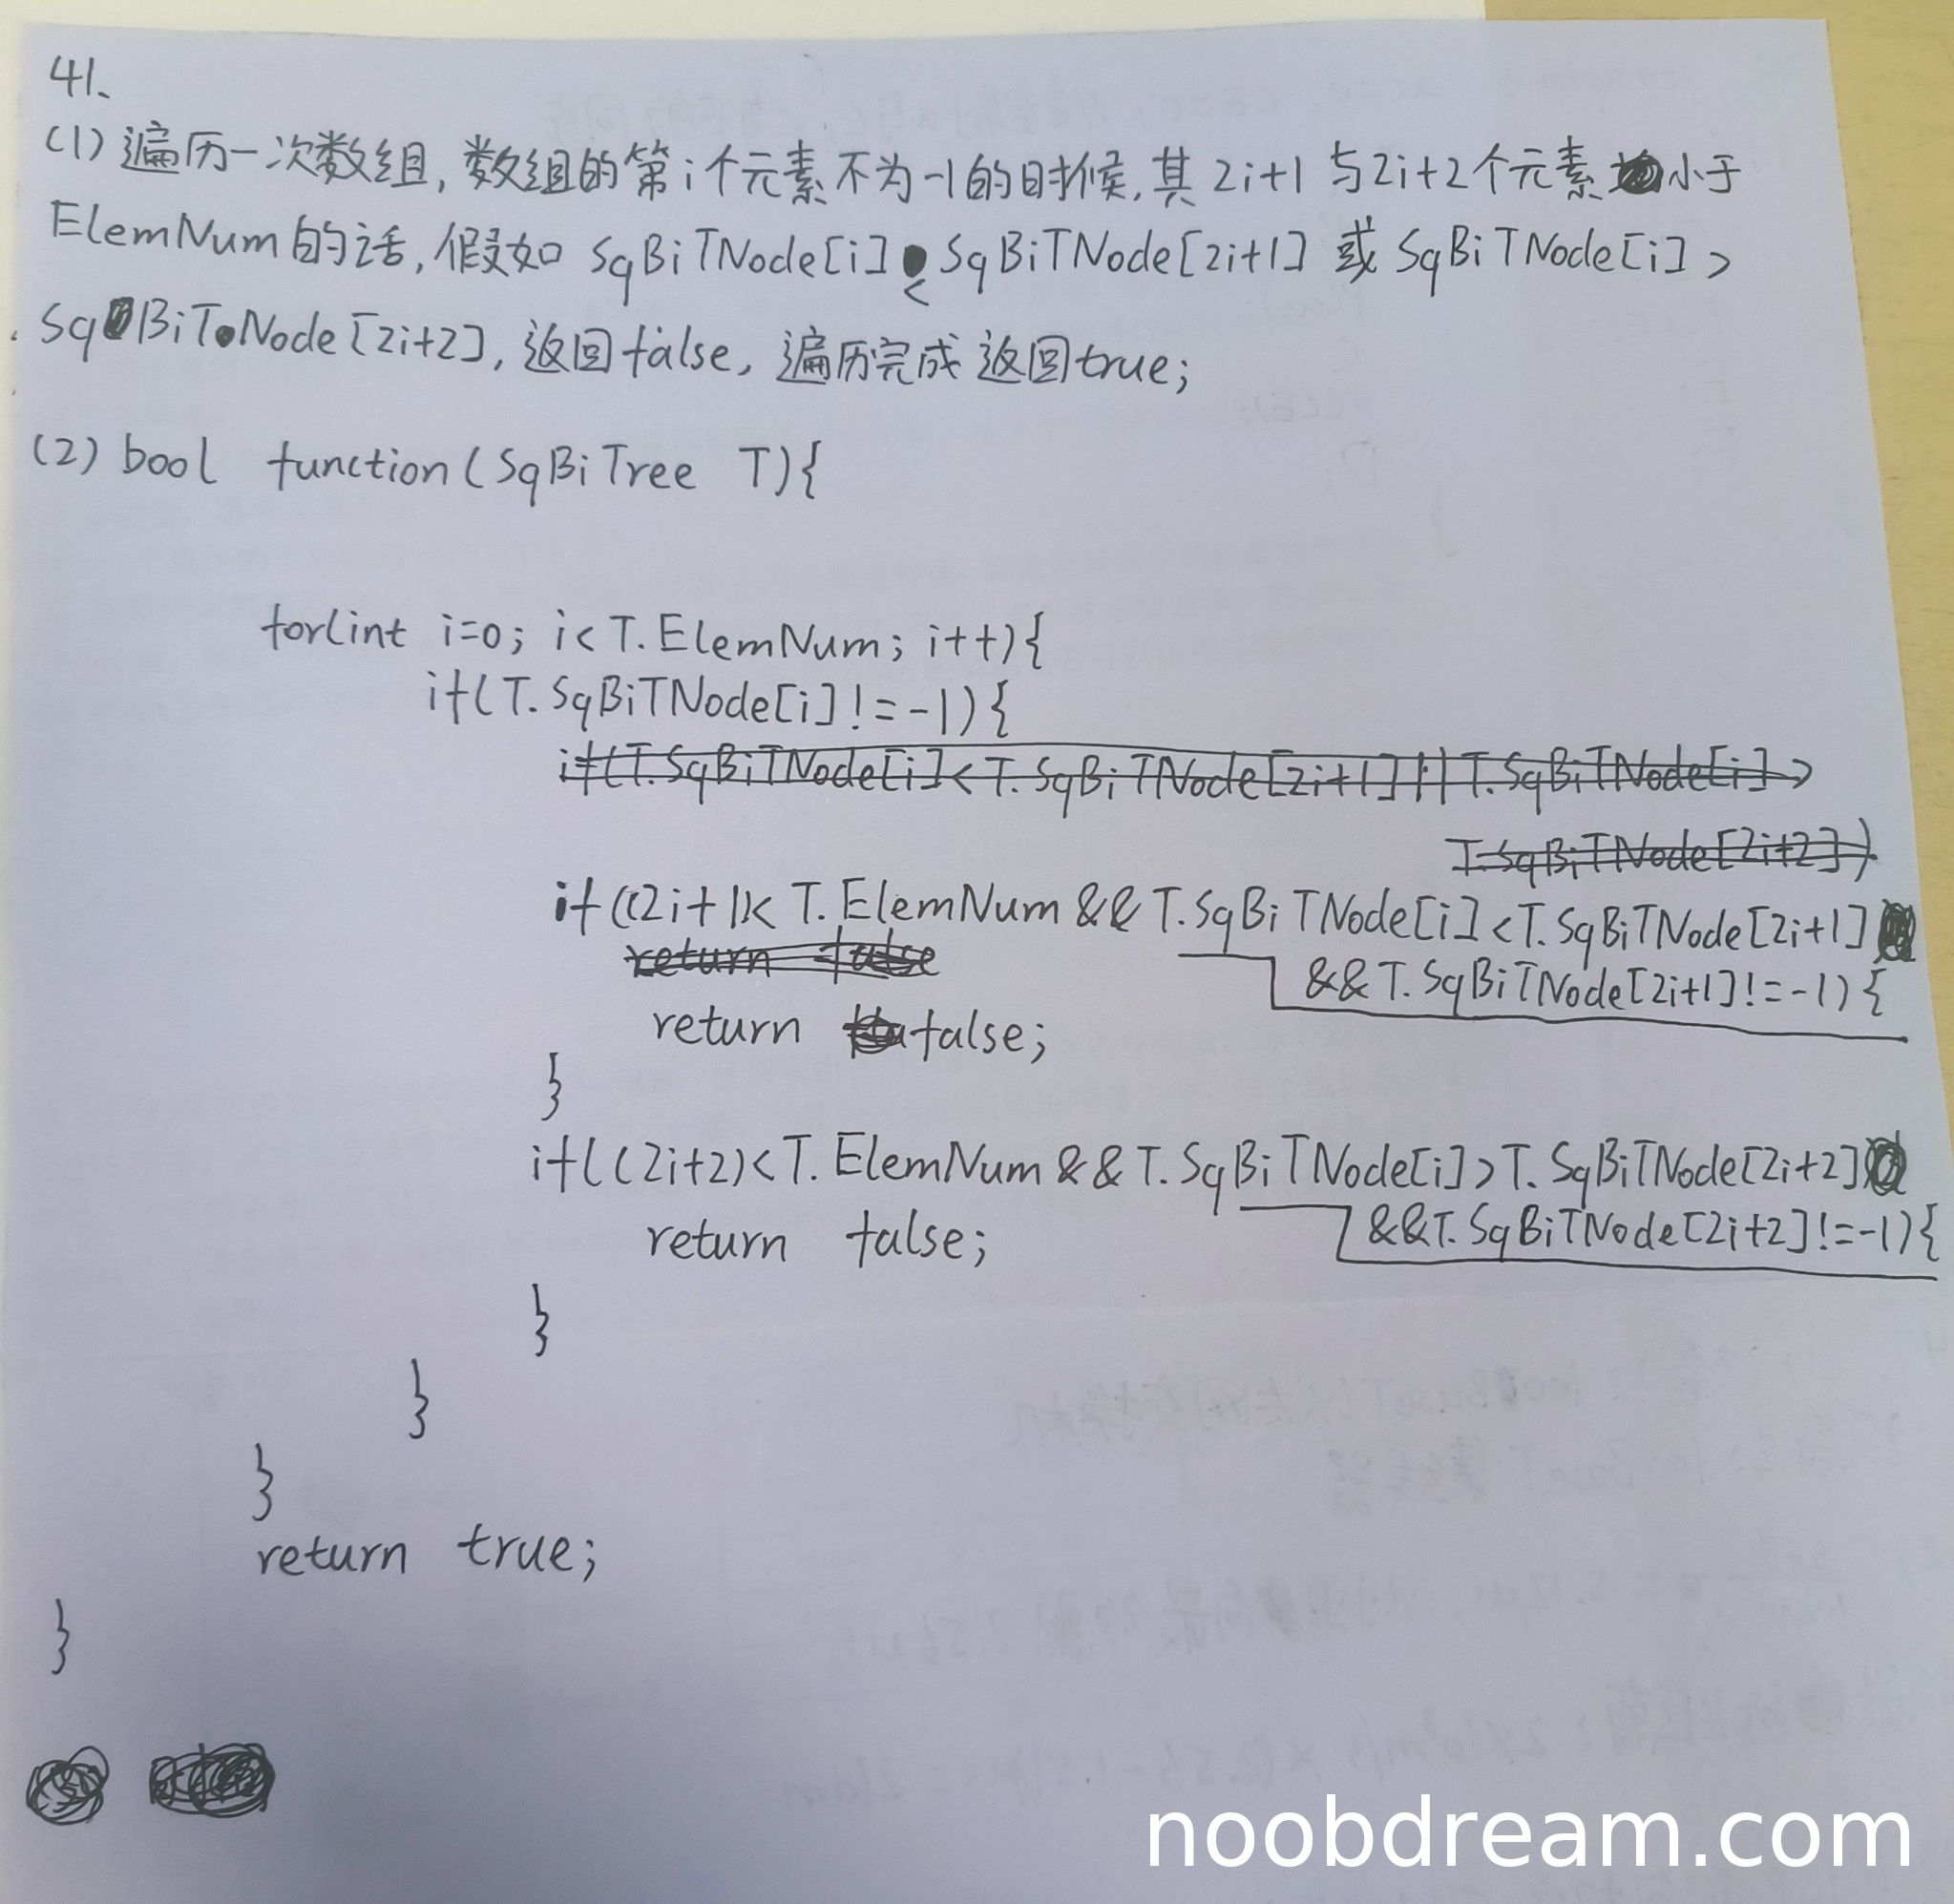 41、
(1) 遍历一次数组, 数组的第i个元素不为-1的时候, 其2i+1与2i+2个元素小于
ElemNum的话, 假如 SqBiTNode[i] < SqBiTNode[2i+1] 或 SqBiTNode[i] >
SqBiTNode[2i+2], 返回false, 遍历完成返回true;
(2) bool function(SqBiTree T){
for(int i=0; i<T.ElemNum; i++){
if(T.SqBiTNode[i]!=-1){
if(T.SqBiTNode[i]<T.SqBiTNode[2i+1]||T.SqBiTNode[i]>
T.SqBiTNode[2i+2])
if((2i+1)<T.ElemNum && T.SqBiTNode[i]<T.SqBiTNode[2i+1]
return false
&&T.SqBiTNode[2i+1]!=-1){
return false;
}
if((2i+2)<T.ElemNum && T.SqBiTNode[i]>T.SqBiTNode[2i+2]
&&T.SqBiTNode[2i+2]!=-1){
return false;
}
}
}
return true;
}
noobdream.com